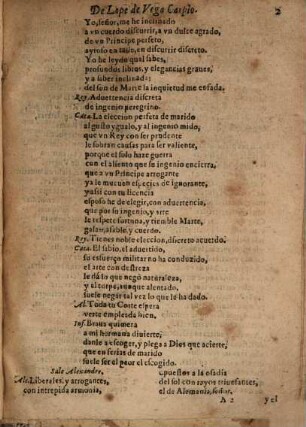 De Lope de Vega Carpio. 2
Yo, señor, me he inclinado
a vn cuerdo discurrir, a vn dulce agrado,
de vn Principe perfeto,
ayroso en talle, en discurrir discreto.
Yo he leydo qual sabes,
profundos libros, y elegancias graues,
y a saber inclinada;
del son de Marte la inquietud me enfada.
Rey. Aduertencia discreta
de ingenio peregrino.
Cata. La eleccion perfeta de marido
al gusto ygualo, y al ingenio mido,
que vn Rey con ser prudente
le sobran causas para ser valiente,
porque el solo haze guerra
con el aliento que su ingenio encierra,
que a vn Principe arrogante
ya le murmuo especies de ignorante,
y assi con tu licencia
esposo he de elegir, con aduertencia,
que por su ingenio, y arte
le respete fortuna, y tiemble Marte,
galan, afable, y cuerdo.
Rey. Tienes noble eleccion, discreto acuerdo.
Cata. El sabio, el aduertido,
so esfuerço militar no ha conducido,
el arte con destreza
le dà lo que negò naturaleza,
y el cuerpo, aunque alentado,
suele negar tal vez lo que le ha dado.
Al. Toda tu Corte espera
verte empleada bien.
Inf. Braua quimera
a mi hermana diuierte,
dante a escoger, y plega a Dios que acierte,
que en ferias de marido
suele ser el peor el escogido.
Sale Alexandro.
Ale. Liberales, y arrogantes,
con intrepida armonia,
opuestos a la osadia
del sol con rayos triunfantes,
el de Alemania, señor,
A 2 y el